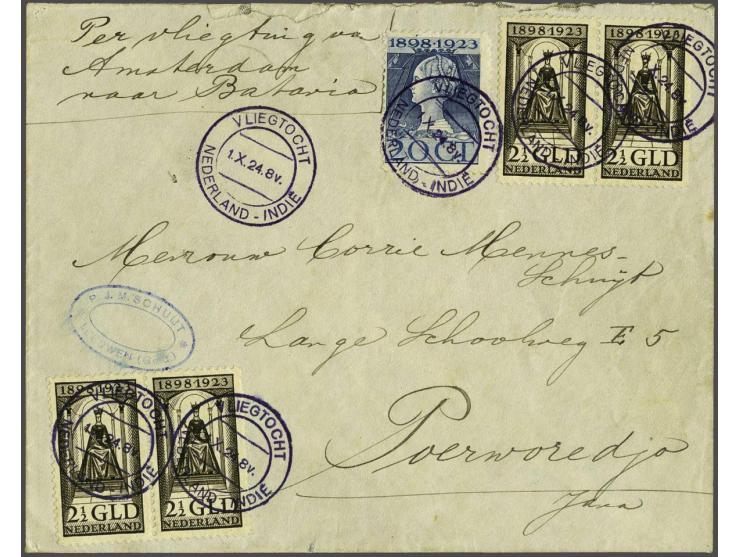 Per vliegtuig via
Amsterdam
naar Batavia
1898-1923
20 CT
1898-1923
2½ GLD
NEDERLAND
1898-1923
2½ GLD
NEDERLAND
VLIEGTOCHT
1.X.24.8v.
NEDERLAND-INDIË
VLIEGTOCHT
X.24.8v.
NEDERLAND-INDIË
VLIEGTOCHT
24.8v.
NEDERLAND-INDIË
VLIEGTOCHT
1.X.24.8v.
Mevrouw Corrie Mennes-
Schuijt
P.J.M. SCHUIJT
Lange Schoolweg E 5
Poerworedjo
Java
1898-1923
2½ GLD
NEDERLAND
1898-1923
2½ GLD
NEDERLAND
VLIEGTOCHT
24.8v.
NEDERLAND-INDIË
VLIEGTOCHT
X.24.8v.
NEDERLAND-INDIË